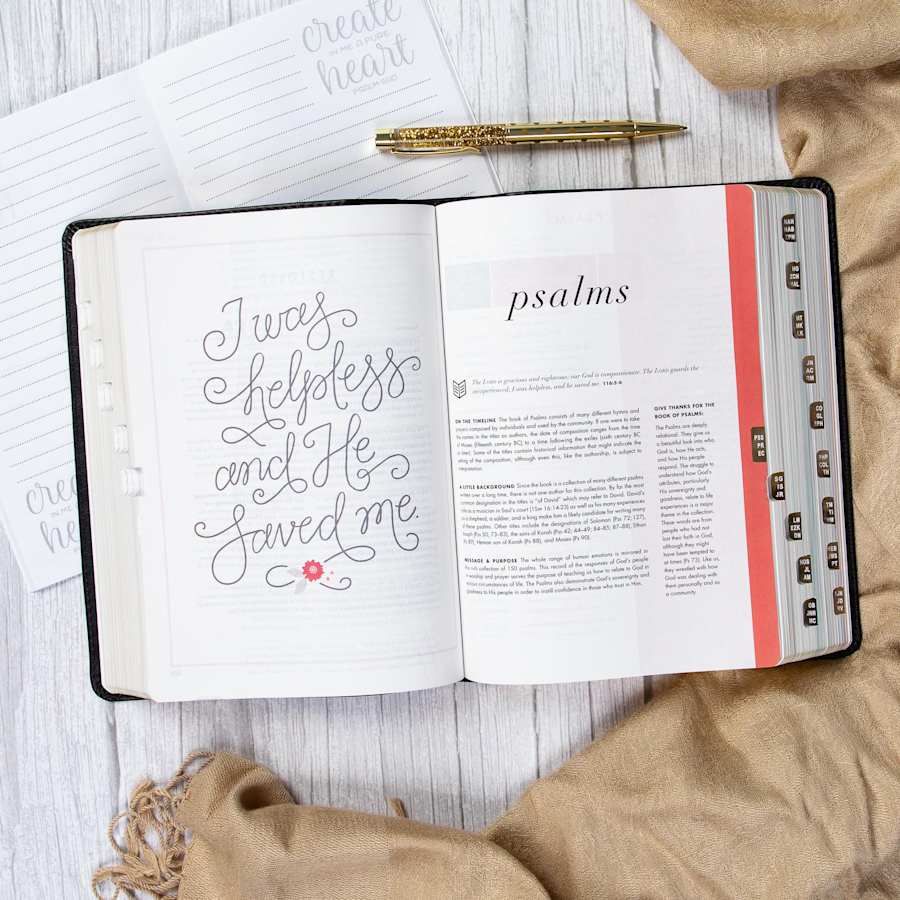 create
IN ME A PURE
heart
PSALM 51:10
I was
helpless
and He
saved me.
psalms
The LORD is gracious and righteous; our God is compassionate. The LORD guards the
inexperienced; I was helpless, and he saved me. 116:5-6
ON THE TIMELINE The book of Psalms consists of many different hymns and
prayers composed by individuals and used by the community. If one were to take
names in the titles as authors, the date of composition ranges from the time
of Moses (fifteenth century BC) to a time following the exiles (sixth century BC
or later). Some of the titles contain historical information that might indicate the
setting of the composition, although even this, like the authorship, is subject to
interpretation.
A LITTLE BACKGROUND Since the book is a collection of many different psalms
written over a long time, there is not one author for this collection. By far the most
common designation in the titles is "of David" which may refer to David. David's
as a musician in Saul's court (1Sm 16:14-23) as well as his many experiences
a shepherd, a soldier, and a king make him a likely candidate for writing many
of these psalms. Other titles include the designations of Solomon (Pss 72; 127),
Asaph (Pss 50; 73–83), the sons of Korah (Pss 42; 44–49; 84–85; 87–88), Ethan
(Ps 89), Heman son of Korah (Ps 88), and Moses (Ps 90).
MESSAGE & PURPOSE The whole range of human emotions is mirrored in
this collection of 150 psalms. This record of the responses of God's people
in worship and prayer serves the purpose of teaching us how to relate to God in
various circumstances of life. The Psalms also demonstrate God's sovereignty and
goodness to His people in order to instill confidence in those who trust in Him.
GIVE THANKS FOR THE
BOOK OF PSALMS:
The Psalms are deeply
relational. They give us
a beautiful look into who
God is, how He acts,
and how His people
respond. The struggle to
understand how God's
attributes, particularly
His sovereignty and
goodness, relate to life
experiences is a major
theme in the collection.
These words are from
people who had not
lost their faith in God,
although they might
have been tempted to
at times (Ps 73). Like us,
they wrestled with how
God was dealing with
them personally and as
a community.
NAH
HAB
ZPH
HG
ZCH
MAL
MT
MK
LK
JN
AC
RM
CO
GL
EPH
PSS
PR
EC
PHP
COL
TH
SG
IS
JR
TM
TI
LM
EZK
DN
HEB
JMS
PT
HOS
JL
AM
JN
JD
RV
OB
JNH
MC
create
heart